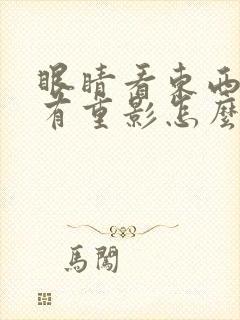 眼睛看東西
有重影怎麼
馬闖